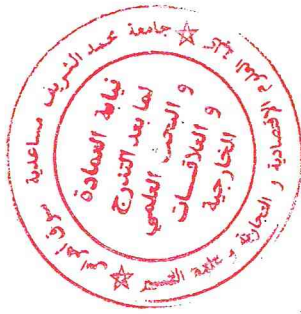 جامعة محمد الشريف مساعدية سوق أهراس
كلية العلوم الاقتصادية و التجارية و علوم التسيير
نيابة العمادة
لما بعد التدرج
و البحث العلمي
و العلاقات
الخارجية